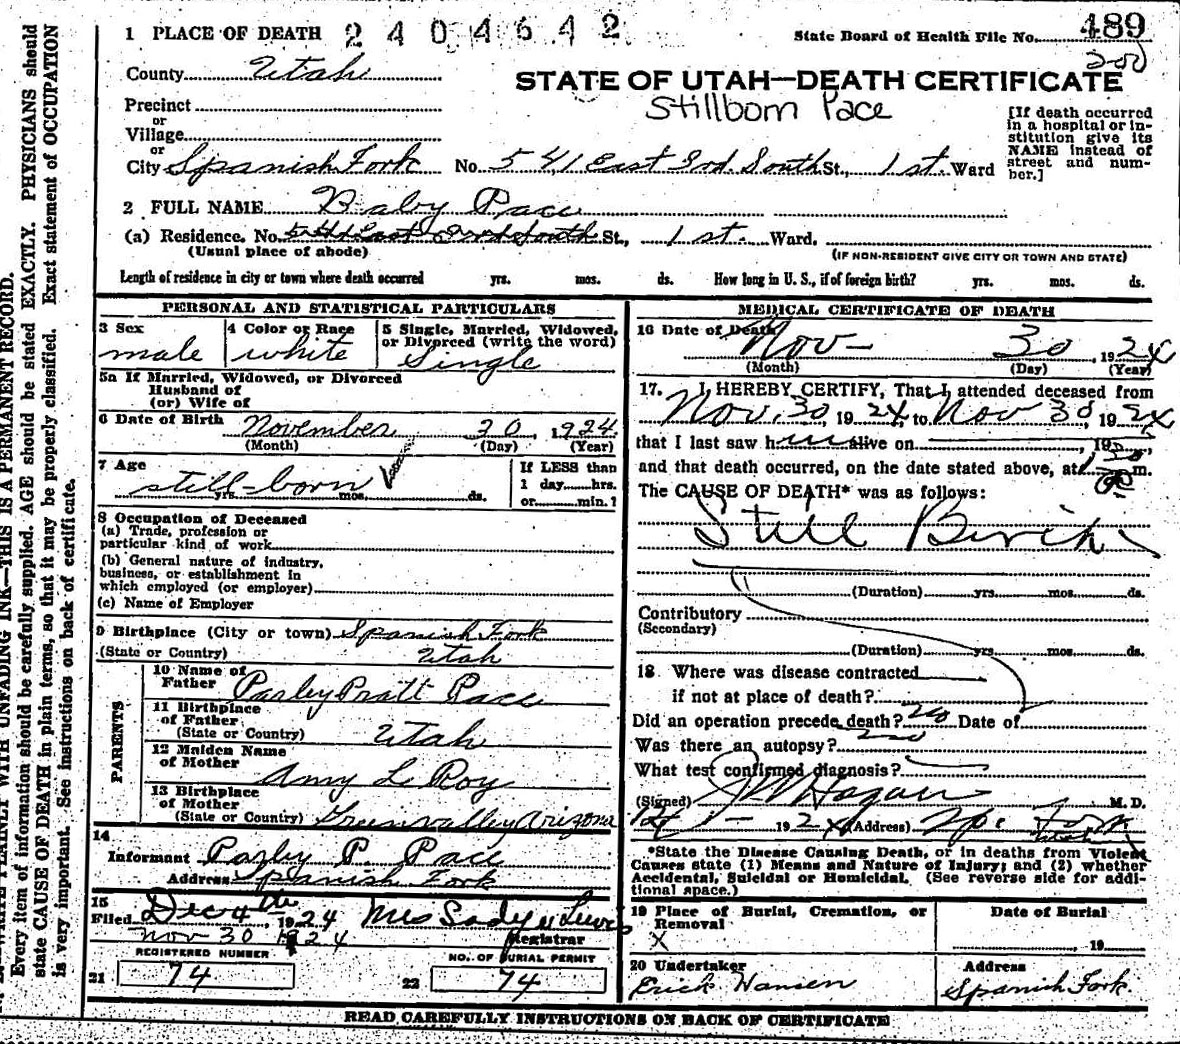 1 PLACE OF DEATH 2404642
State Board of Health File No. 489
200
County Utah
STATE OF UTAH—DEATH CERTIFICATE
Stillborn Pace
Precinct
or
Village
or
City Spanish Fork No. 541 East 3rd. South St., 1st. Ward
[If death occurred
in a hospital or in-
stitution give its
NAME instead of
street and num-
ber.]
2 FULL NAME Baby Pace
(a) Residence. No. 541 East 3rd South St., 1st. Ward.
(Usual place of abode)
(IF NON-RESIDENT GIVE CITY OR TOWN AND STATE)
Length of residence in city or town where death occurred yrs. mos. ds. How long in U. S., if of foreign birth? yrs. mos. ds.
PERSONAL AND STATISTICAL PARTICULARS
3 Sex
male
4 Color or Race
white
5 Single, Married, Widowed,
or Divorced (write the word)
Single
5a If Married, Widowed, or Divorced
Husband of
(or) Wife of
6 Date of Birth November 30, 1924
(Month) (Day) (Year)
7 Age
still-born
yrs. mos. ds.
If LESS than
1 day......hrs.
or......min.?
8 Occupation of Deceased
(a) Trade, profession or
particular kind of work
(b) General nature of industry,
business, or establishment in
which employed (or employer)
(c) Name of Employer
9 Birthplace (City or town) Spanish Fork
(State or Country) Utah
PARENTS
10 Name of
Father Parley Pratt Pace
11 Birthplace
of Father
(State or Country) Utah
12 Maiden Name
of Mother Amy Le Roy
13 Birthplace
of Mother
(State or Country) Greenvalley Arizona
14
Informant Parley P. Pace
Address Spanish Fork
15
Filed Dec 4th 1924 Mrs Sady Lewis
Nov 30 1924 Registrar
REGISTERED NUMBER
21 74
NO. OF BURIAL PERMIT
22 74
MEDICAL CERTIFICATE OF DEATH
16 Date of Death
Nov— 30, 1924
(Month) (Day) (Year)
17. I HEREBY CERTIFY, That I attended deceased from
Nov. 30, 1924, to Nov 30, 1924
that I last saw h alive on , 19
and that death occurred, on the date stated above, at m.
The CAUSE OF DEATH* was as follows:
Still Birth
(Duration) yrs. mos. ds.
Contributory
(Secondary)
(Duration) yrs. mos. ds.
18 Where was disease contracted
if not at place of death?
Did an operation precede death? no Date of
Was there an autopsy? no
What test confirmed diagnosis?
(Signed) J W Hagan M. D.
1924 (Address) Sp. Fork
Utah
*State the Disease Causing Death, or in deaths from Violent
Causes state (1) Means and Nature of Injury; and (2) whether
Accidental, Suicidal or Homicidal. (See reverse side for addi-
tional space.)
19 Place of Burial, Cremation, or
Removal
X
Date of Burial
, 19
20 Undertaker
Erick Hansen
Address
Spanish Fork.
READ CAREFULLY INSTRUCTIONS ON BACK OF CERTIFICATE
WRITE PLAINLY WITH UNFADING INK—THIS IS A PERMANENT RECORD.
Every item of information should be carefully supplied. AGE should be stated EXACTLY. PHYSICIANS should
state CAUSE OF DEATH in plain terms, so that it may be properly classified. Exact statement of OCCUPATION
is very important. See instructions on back of certificate.